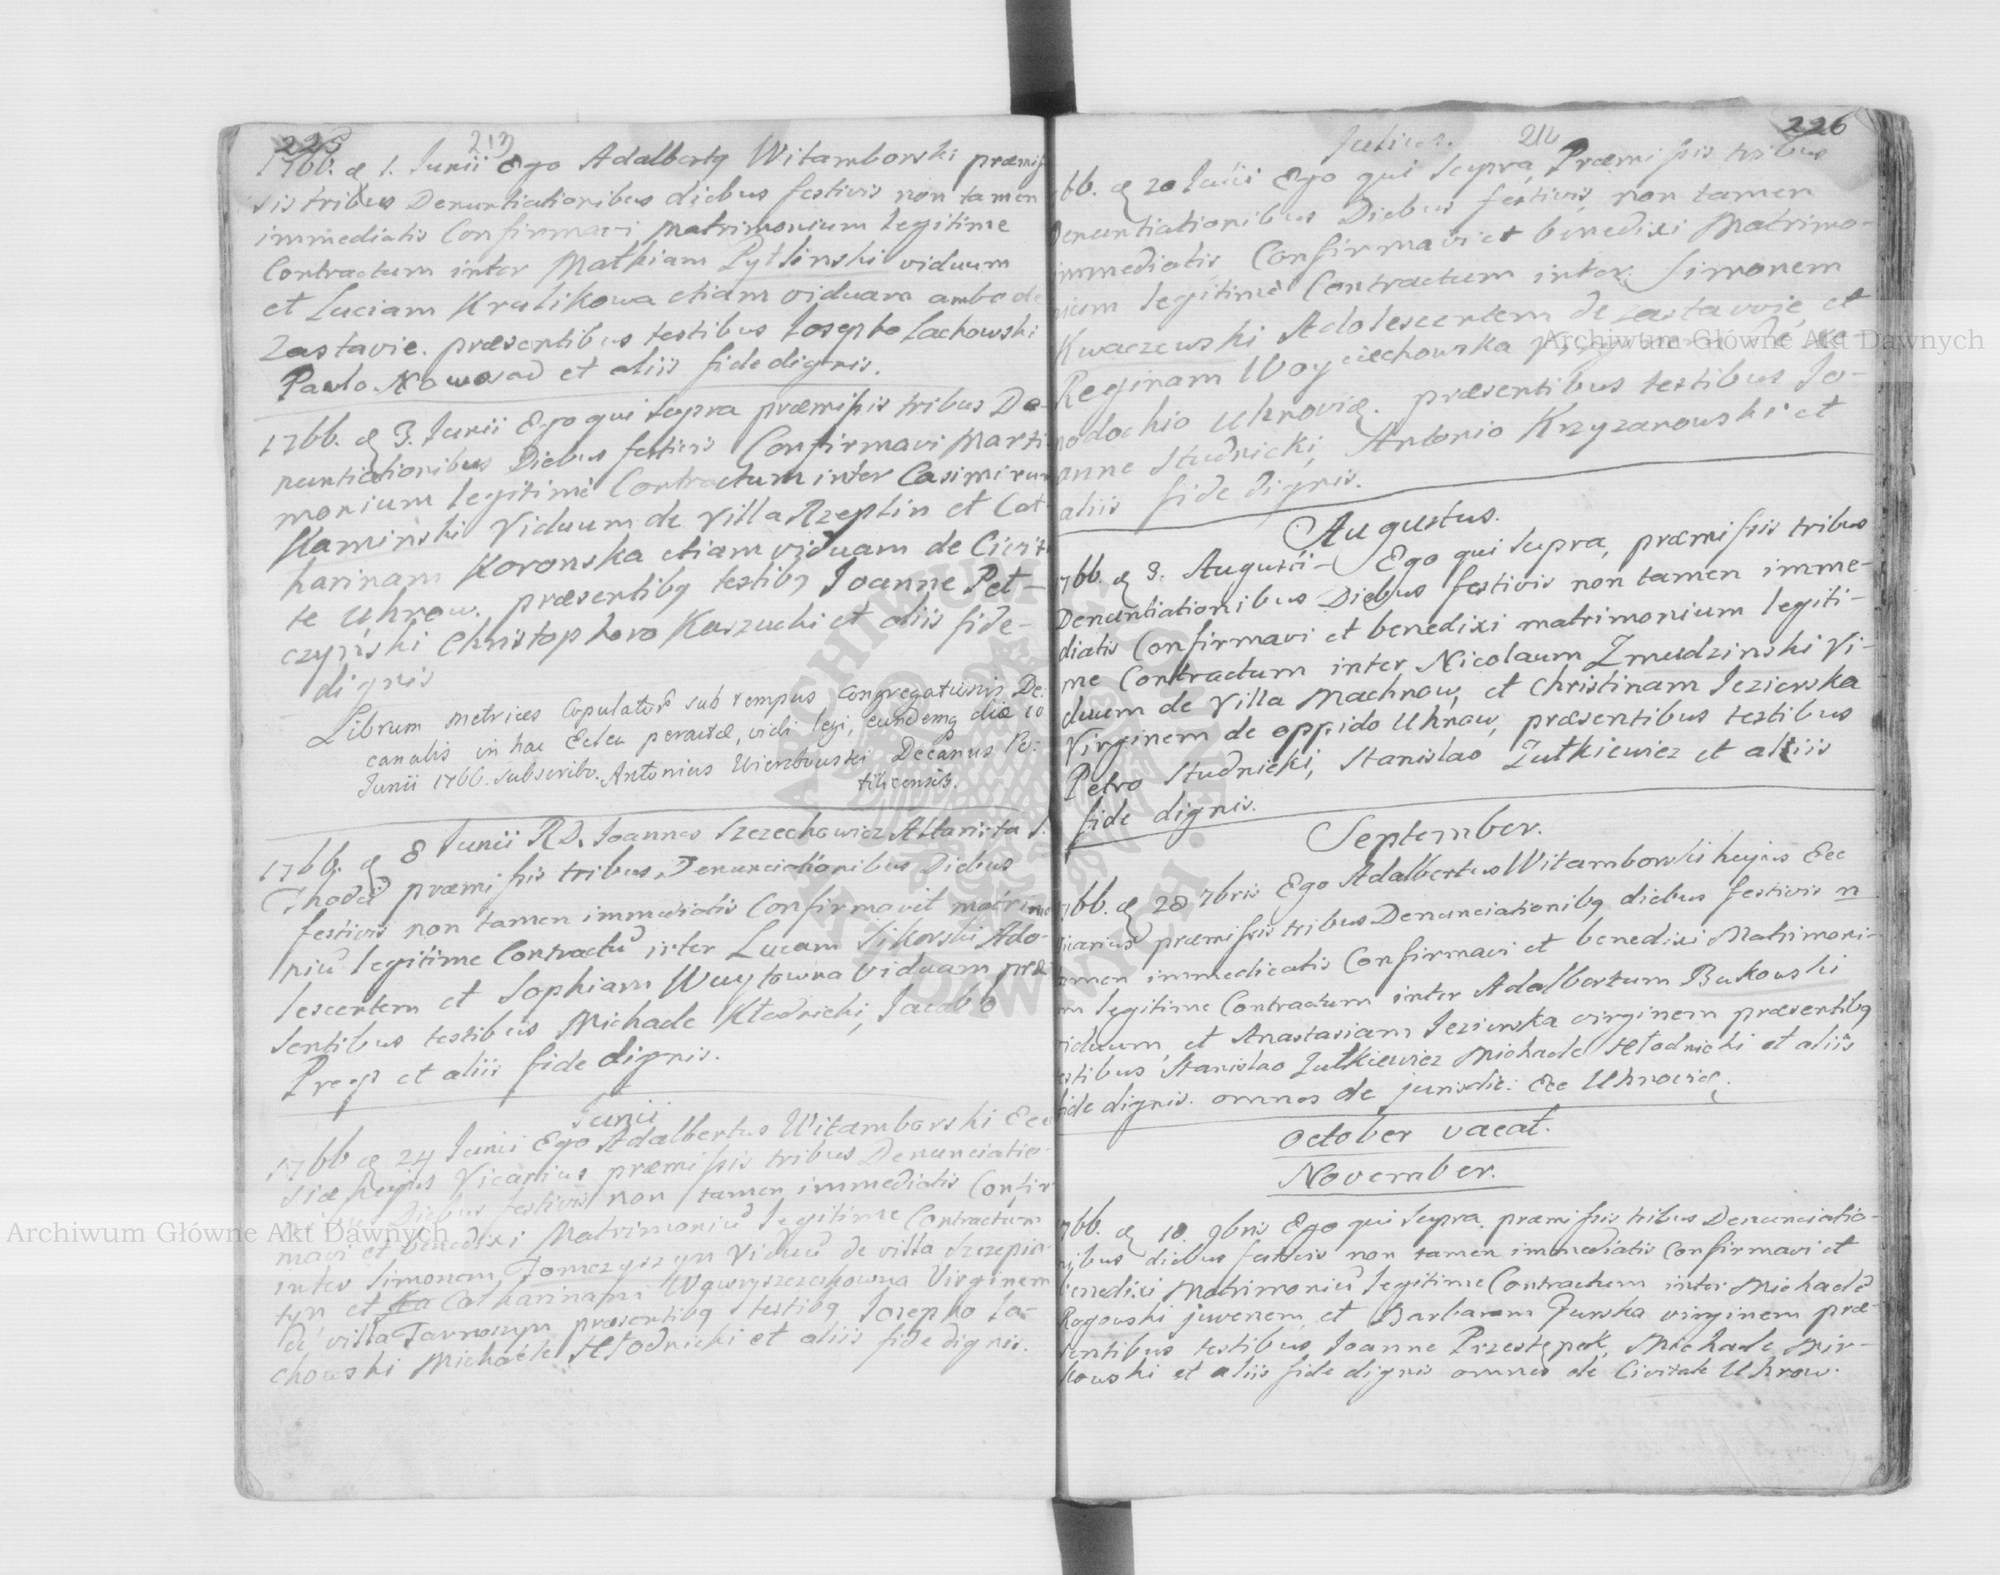 225 213
1766. d. 1. Junii Ego Adalbertq Witamborski præmis
sis tribus Denuntiationibus diebus festivis non tamen
immediatis Confirmavi matrimonium legitime
Contractum inter Mathiam Pytlinski viduum
et Luciam Krulikowa etiam viduam ambo de
Zastavie. præsentibus testibus Josepho Lachowski
Paulo Nowosad et aliis fide dignis.
1766. d. 3. Junii Ego qui supra præmissis tribus De-
nuntiationibus Diebus festivis Confirmavi Martri
monium legitimè Contractum inter Casimirum
Kaminski Viduum de Villa Rzeplin et Cat
harinam Koronska etiam viduam de Civita
te Uhnow. præsentibq testibq Joanne Pet-
czynski Christophoro Kaszucki et aliis fide-
dignis
Librum metrices Copulatorũ sub tempus Congregationis De
canalis in hac Eccla peractæ, vidi legi, eundemq die 10
Junii 1766. subscribo. Antonius Wierzbowski Decanus Po:
tilicensis.
1766. d. 8 Junii R.D. Joannes Szczechowicz Altarista S.
Thadei præmissis tribus Denunciationibus Diebus
festivis non tamen immediatis Confirmavit matrimo
niũ legitime Contractũ inter Lucam Sikorski Ado-
lescentem et Sophiam Wuytowna Viduam præ
sentibus testibus Michaele Kłodnicki, Jacobo
et aliis fide dignis.
Junii
1766 d. 24 Junii Ego Adalbertus Witamborski Eccl
siæ hujus Vicarius præmissis tribus Denunciatio-
nibus Diebus festivis non tamen immediatis Confir
mavi et benedixi Matrimoniũ legitime Contractum
inter Simonem Tomczyszyn Viduũ de villa Szczepia-
tyn et Catharinam Wawryszczakowna Virginem
de villa Tarnoszyn præsentibq testibq Josepho La-
chowski Michaele Kłodnicki et aliis fide dignis.
Julius. 214 226
66. d. 20 Julii Ego qui supra, Præmissis tribus
Denuntiationibus Diebus festivis, non tamen
immediatis Confirmavi et benedixi Matrimo-
nium legitimè Contractum inter Simonem
Kwaczewski Adolescentem de zastavie, et
Reginam Woyciechowska de Xe
nodochio Uhnoviæ. præsentibus testibus Jo-
anne Studnicki, Antonio Krzyzanowski et
aliis fide dignis.
Augustus.
1766. d. 3. Augusti Ego qui supra, præmissis tribus
Denuntiationibus Diebus festivis non tamen imme-
diatis Confirmavi et benedixi matrimonium legiti-
me Contractum inter Nicolaum Zmudzinski Vi-
duum de Villa Machnow, et Christinam Jezierska
Virginem de oppido Uhnow, præsentibus testibus
Petro Studnicki, Stanislao Zułkiewicz et aliis
fide dignis.
September.
1766. d. 28 7bris Ego Adalbertus Witamborski hujus Ecc
Vicarius præmissis tribus Denunciationibq diebus festivis n
tamen immediatis Confirmavi et benedixi Matrimoni-
m legitime Contractum inter Adalbertum Bukowski
viduum, et Anastasiam Jezierska virginem præsentibq
testibus Stanislao Zułkiewicz Michaele Kłodnicki et aliis
fide dignis. omnes de jurisdic: Ecc Uhnoviæ.
October vacat.
November.
1766. d. 10. 9bris Ego qui supra, præmissis tribus Denunciatio-
nibus diebus festivis non tamen immediatis Confirmavi et
benedixi Matrimoniũ legitime Contractum inter Michaelẽ
Rogowski juvenem, et Barbaram Zurska virginem præ-
sentibus testibus Joanne Przestępek, Michaele Mir-
kowski et aliis fide dignis omnes de Civitate Uhnow.
Archiwum Główne Akt Dawnych
Archiwum Główne Akt Dawnych